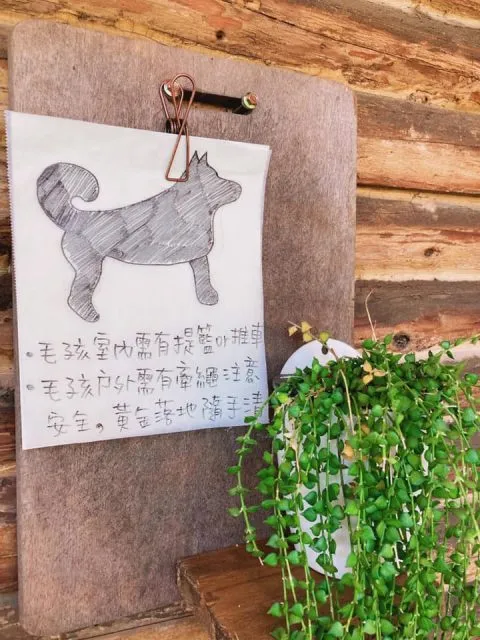 ·毛孩室內需有提籃or推車
·毛孩戶外需有牽繩注意
安全。黃金落地隨手清